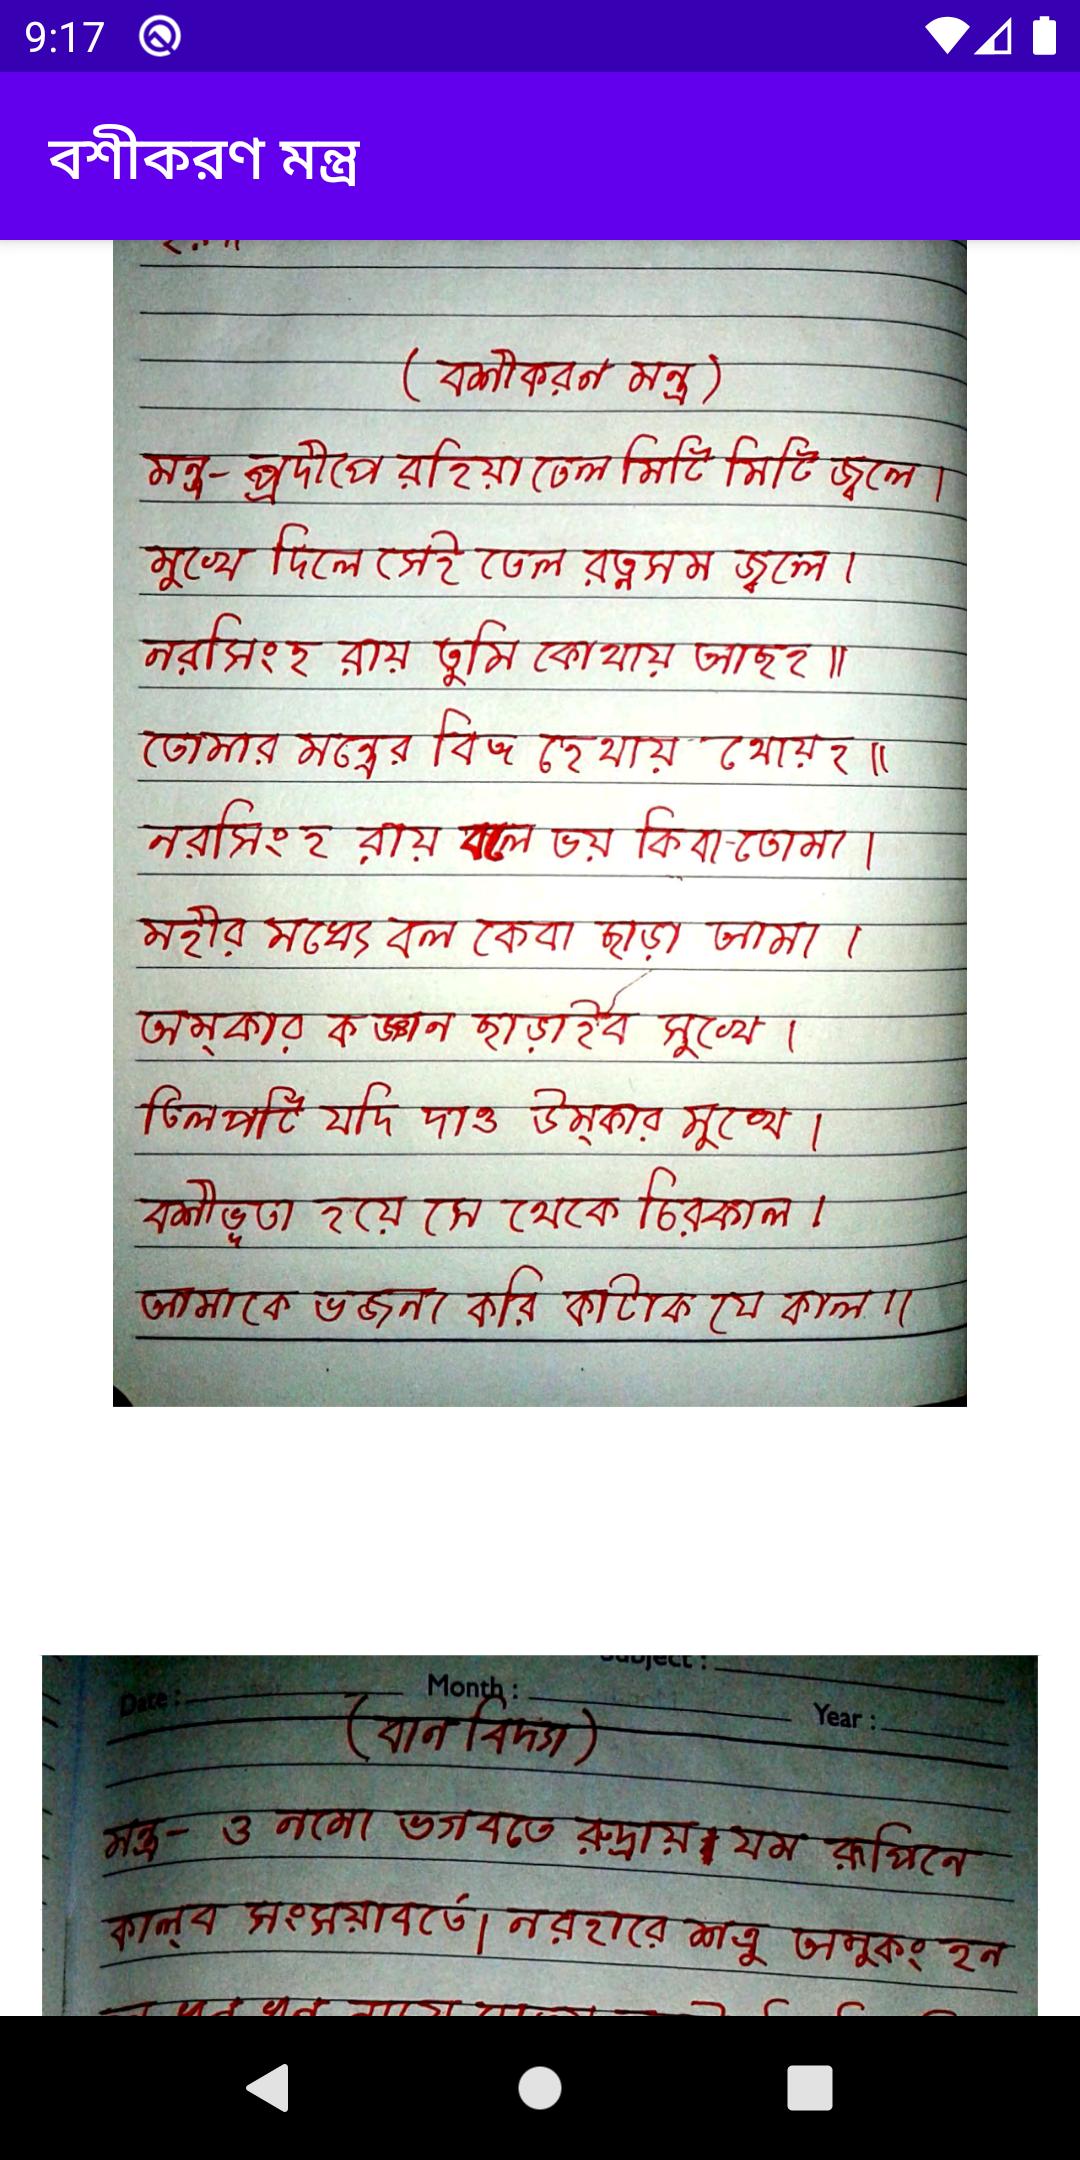 9:17
বশীকরণ মন্ত্র
( বশীকরন মন্ত্র )
মন্ত্র- প্রদীপে রহিয়া তেল মিটি মিটি জ্বলে ।
মুখে দিলে সেই তেল রত্নসম জ্বলে ।
নরসিংহ রায় তুমি কোথায় আছহ ॥
তোমার মন্ত্রের বিজ হেথায় থোয়হ ॥
নরসিংহ রায় বলে ভয় কিবা-তোমা ।
মহীর মধ্যে বল কেবা ছাড়া আমা ।
অম্কার ক জ্ঞান ছাড়াইব সুখে ।
তিলপটি যদি দাও উম্কার মুখে ।
বশীভূতা হয়ে সে থেকে চিরকাল ।
আমাকে ভজনা করি কাটাক যে কাল ॥
Subject :
Date :
Month :
Year :
( বান বিদ্যা )
মন্ত্র- ও নমো ভগবতে রুদ্রায় । যম রূপিনে
কাল্ব সংসয়াবর্তে । নরহারে শত্রু অমুকং হন